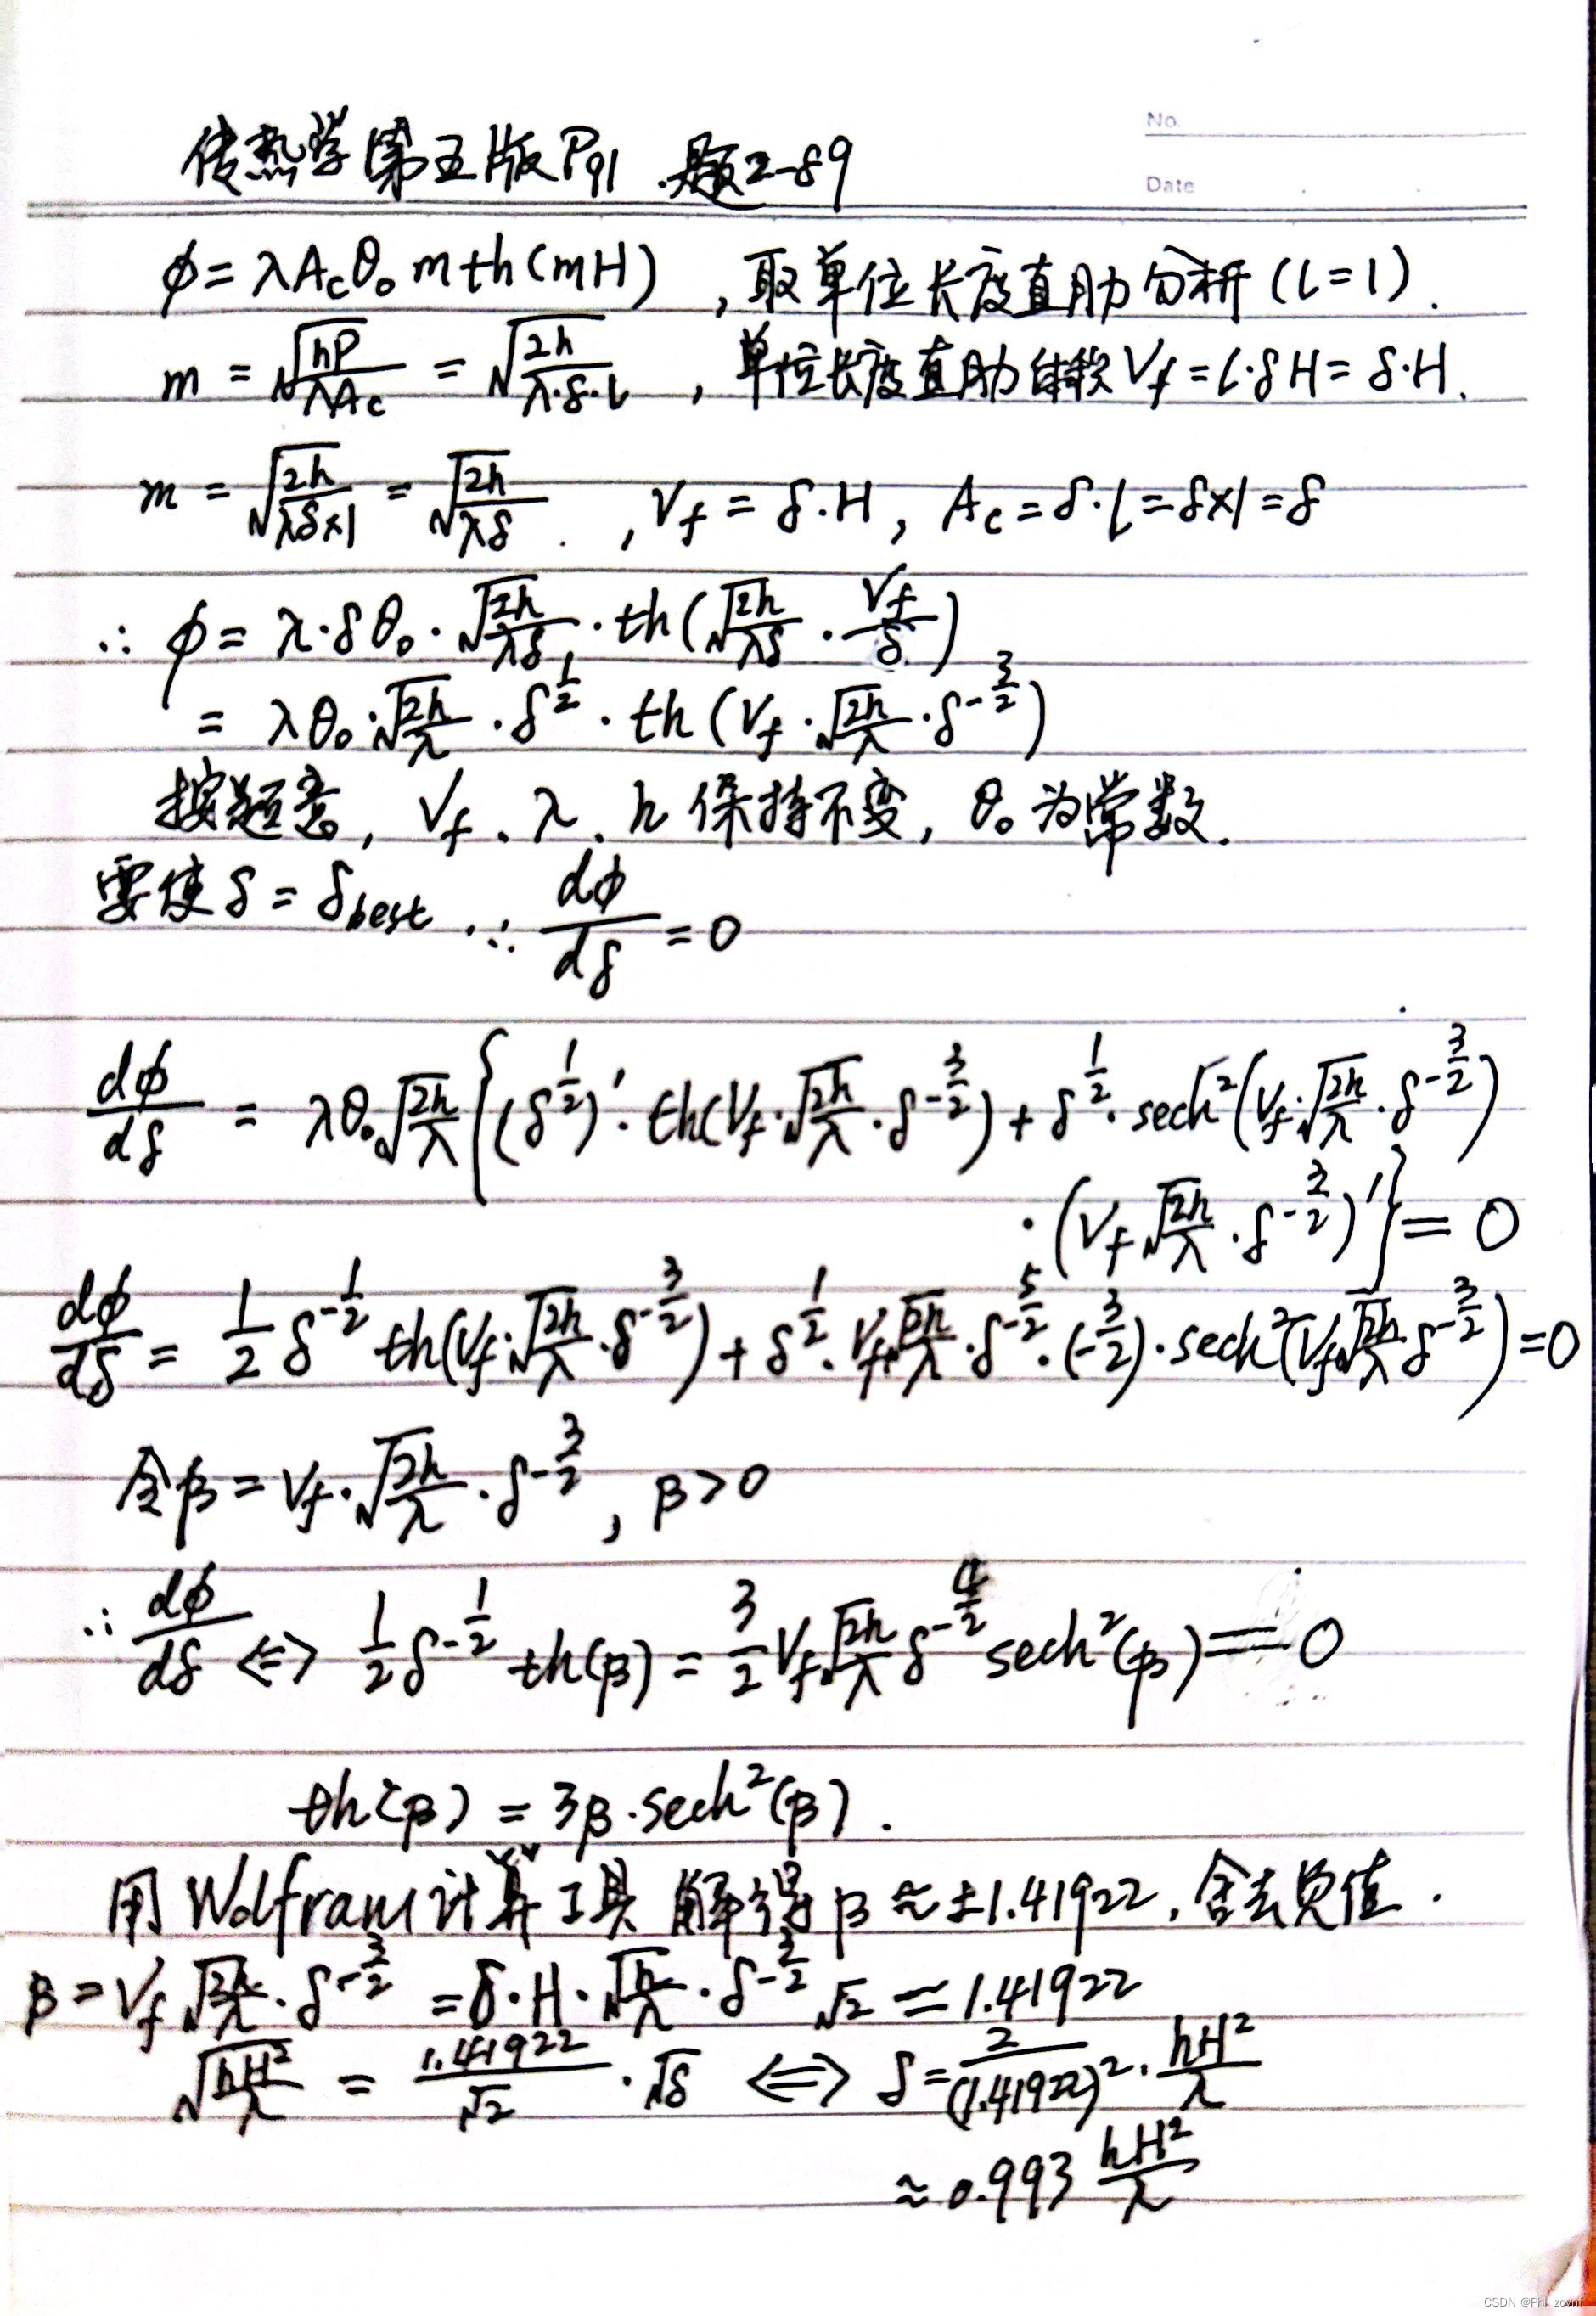 No.
传热学第五版P91 .题2-89
Date
ϕ=λAcθ₀mth(mH) ,取单位长度直肋分析(l=1).
m=√(hP/λAc)=√(2h/λ·δ·l) ,单位长度直肋体积Vf=l·δH=δ·H.
m=√(2h/λδ×1)=√(2h/λδ). ,Vf=δ.H, Ac=δ·l=δ×1=δ
∴ ϕ=λ·δθ₀·√(2h/λδ)·th(√(2h/λδ)·Vf/δ)
=λθ₀·√(2h/λ)·δ^(1/2)·th(Vf·√(2h/λ)·δ^(-3/2))
按题意, Vf、λ、h保持不变, θ₀为常数.
要使δ=δbest .∴ dϕ/dδ=0
dϕ/dδ = λθ₀√(2h/λ){(δ^(1/2))'·th(Vf·√(2h/λ)·δ^(-3/2))+δ^(1/2)·sech²(Vf·√(2h/λ)·δ^(-3/2))
·(Vf√(2h/λ)·δ^(-3/2))'}=0
dϕ/dδ=1/2 δ^(-1/2) th(Vf·√(2h/λ)·δ^(-3/2))+δ^(1/2)·Vf√(2h/λ)·δ^(-5/2)·(-3/2)·sech²(Vf√(2h/λ)δ^(-3/2))=0
令β=Vf·√(2h/λ)·δ^(-3/2), β>0
∴ dϕ/dδ ⇔ 1/2 δ^(-1/2) th(β)=3/2 Vf√(2h/λ)δ^(-4/2) sech²(β)=0
th(β)=3β·sech²(β).
用Wolfram计算工具 解得β≈±1.41922,舍去负值.
β=Vf√(2h/λ)·δ^(-3/2)=δ·H·√(h/λ)·δ^(-3/2)√2=1.41922
√(hH²/λ)=1.41922/√2·√δ ⇔ δ=2/(1.41922)²·hH²/λ
≈0.993 hH²/λ